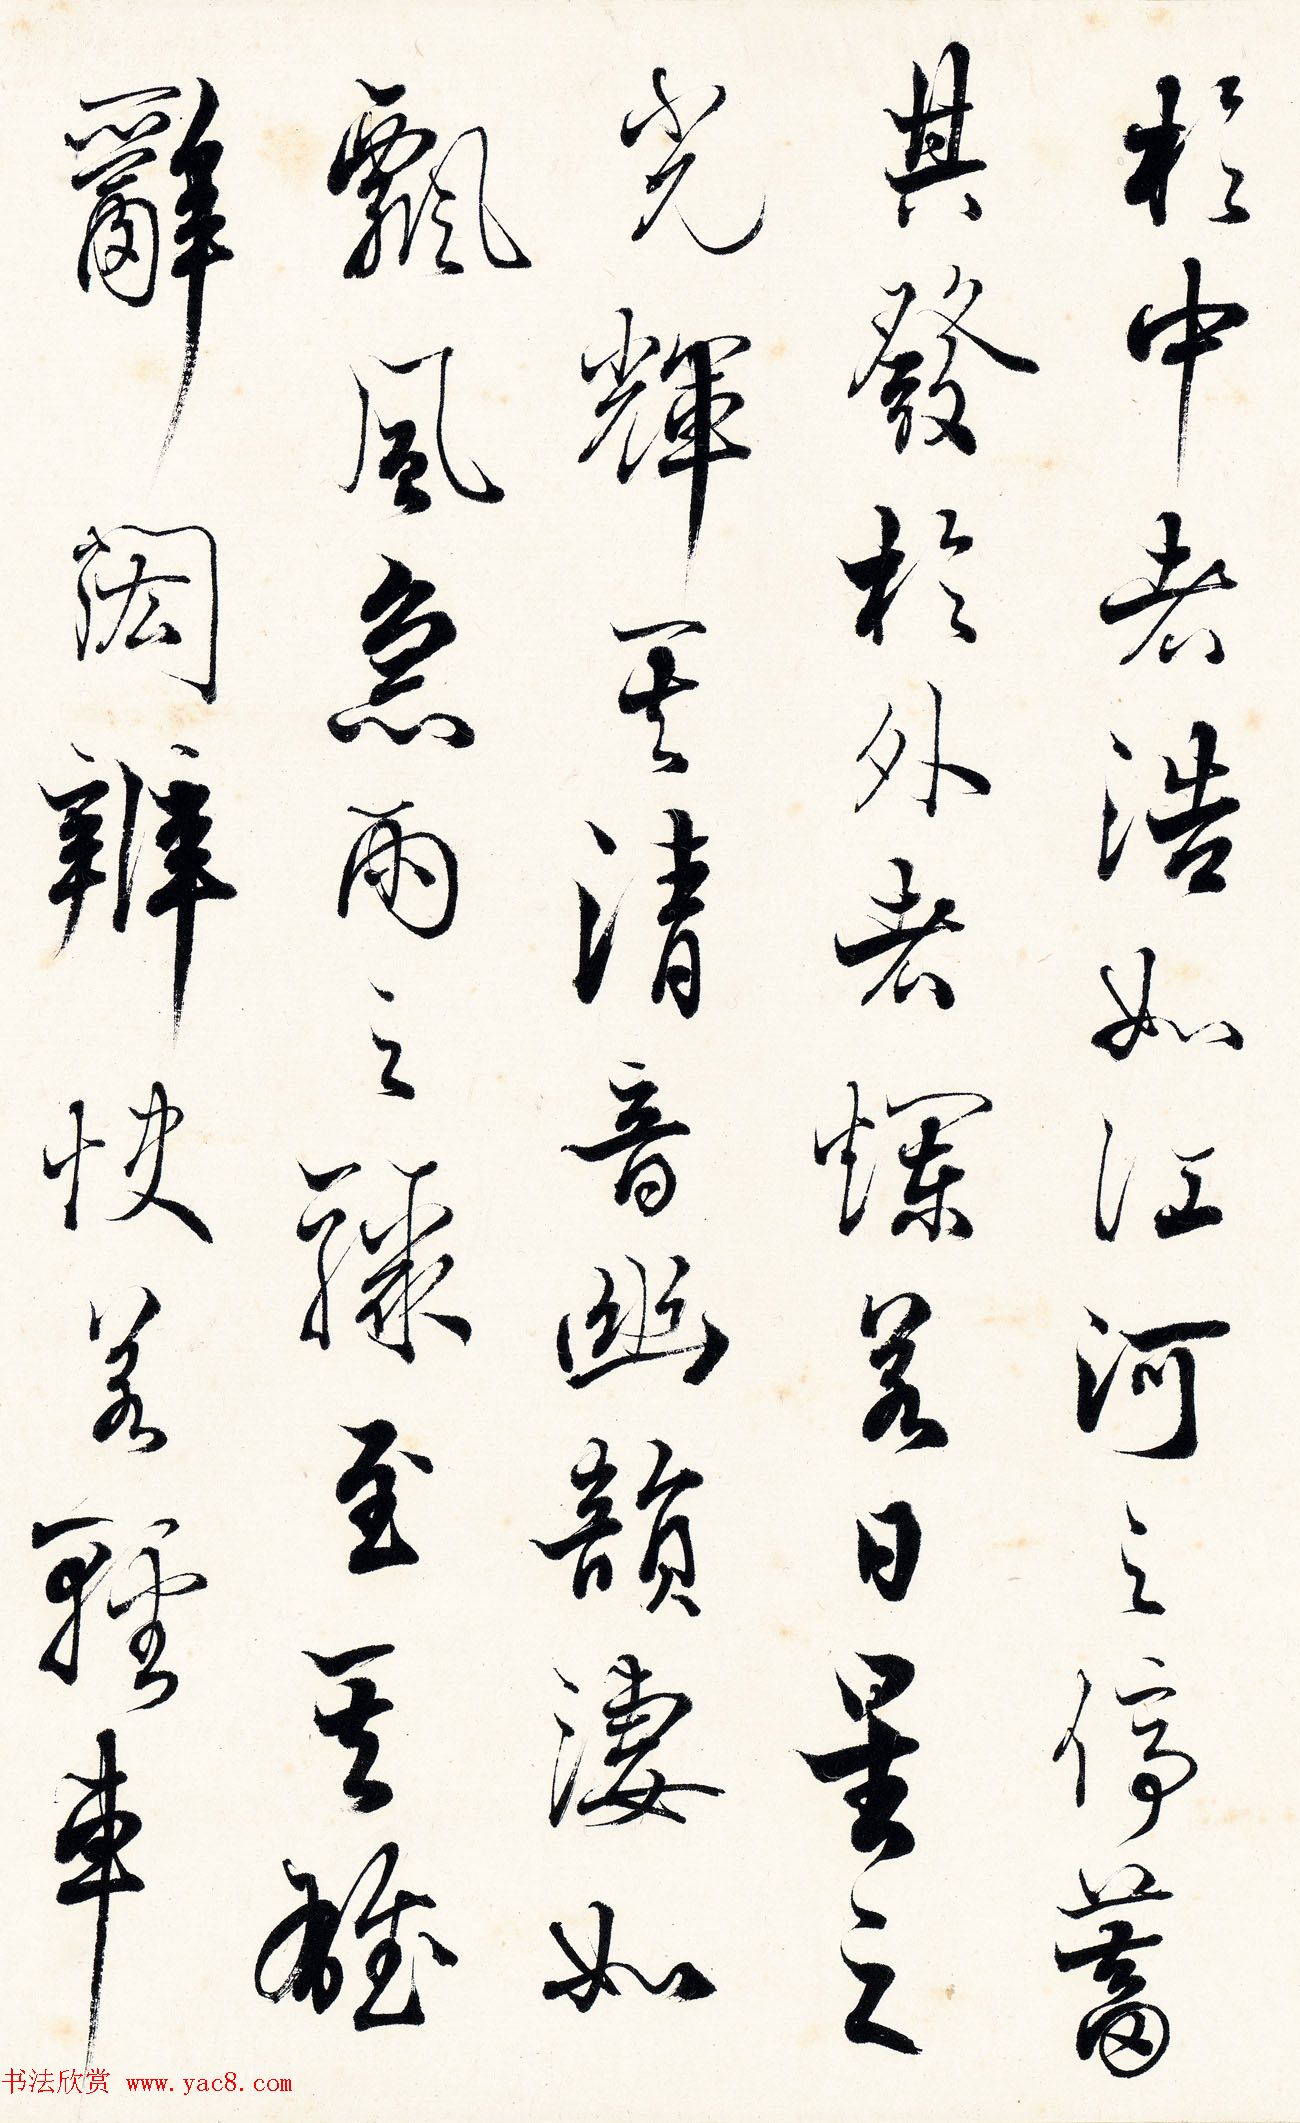 於中者浩如江河之停蓄
其發於外者爛若日星之
光輝其清音幽韻淒如
飄風急雨之驟至其雄
辭閎辯快若輕車
书法欣赏 www.yac8.com